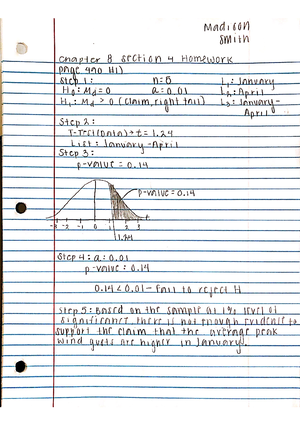 Madison
Smith
Chapter 8 Section 4 Homework
page 490 #1)
Step 1: n=5 L₁: January
H₀: Md=0 α=0.01 L₂: April
H₁: Md>0 (claim, right tail) L₃: January-
April
Step 2:
T-Test(Data)→t=1.24
List: January-April
Step 3:
p-value=0.14
p-value=0.14
-3 -2 -1 1 2 3 t
1.24
Step 4: α=0.01
p-value=0.14
0.14<0.01-fail to reject H
Step 5: Based on the sample at 1% level of
significance, there is not enough evidence to
support the claim that the average peak
wind gusts are higher in January.